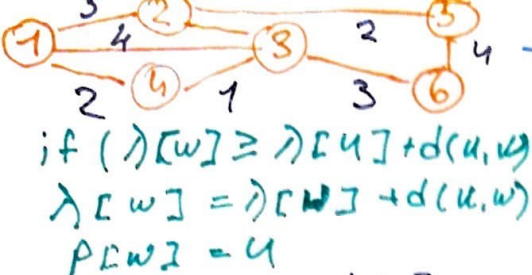 3 2 5
1 4 3 2 4
2 4 1 3 6
if (λ[w] ≥ λ[u] + d(u,w)
λ[w] = λ[u] + d(u,w)
P[w] = u